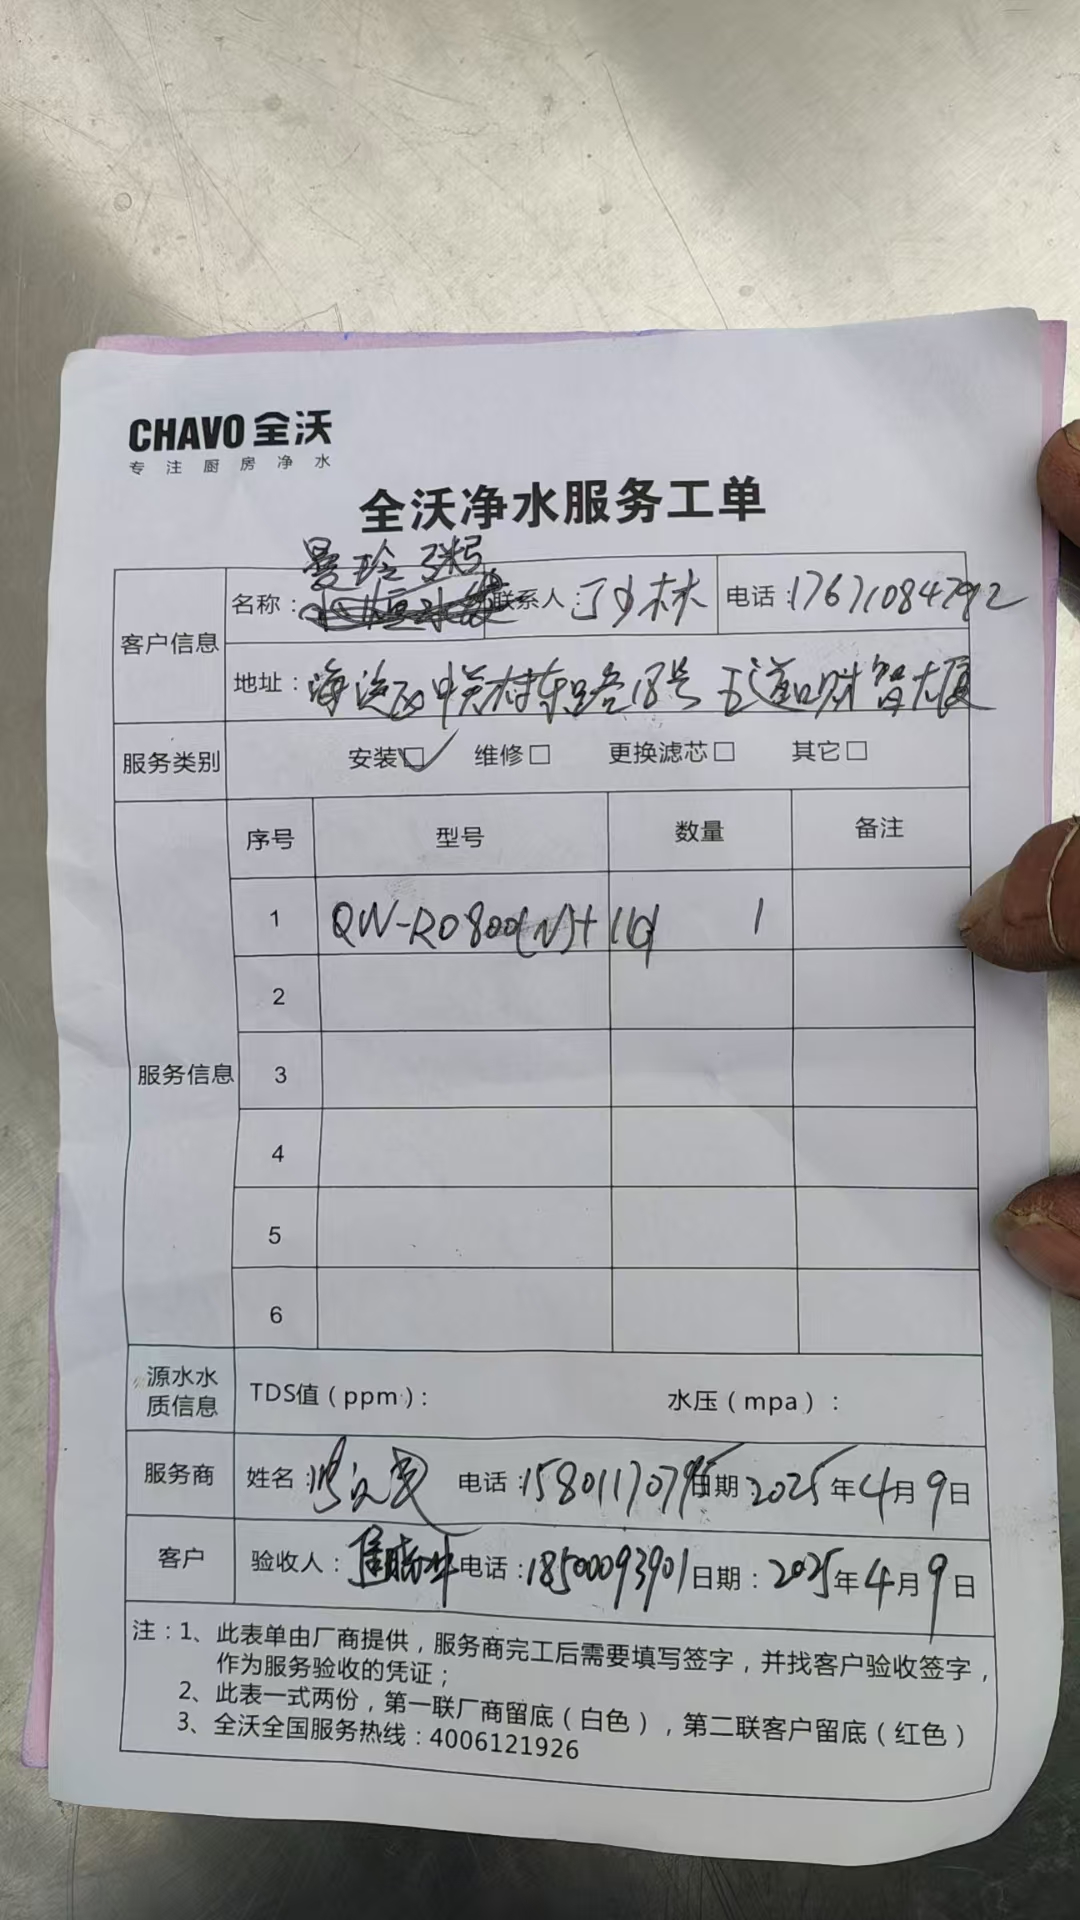 CHAVO 全沃
专注厨房净水
全沃净水服务工单
曼玲粥
客户信息 名称： 联系人： 林 电话：17671084792
地址：海淀区中关村东路18号 五道口财智大厦
服务类别 安装☑ 维修□ 更换滤芯□ 其它□
序号 型号 数量 备注
1 QW-RO800(N)+11G 1
2
服务信息 3
4
5
6
源水水质信息 TDS值（ppm）： 水压（mpa）：
服务商 姓名： 电话：15801170795 日期：2025年4月9日
客户 验收人： 电话：18500093901 日期：2025年4月9日
注：1、此表单由厂商提供，服务商完工后需要填写签字，并找客户验收签字，
作为服务验收的凭证；
2、此表一式两份，第一联厂商留底（白色），第二联客户留底（红色）
3、全沃全国服务热线：4006121926